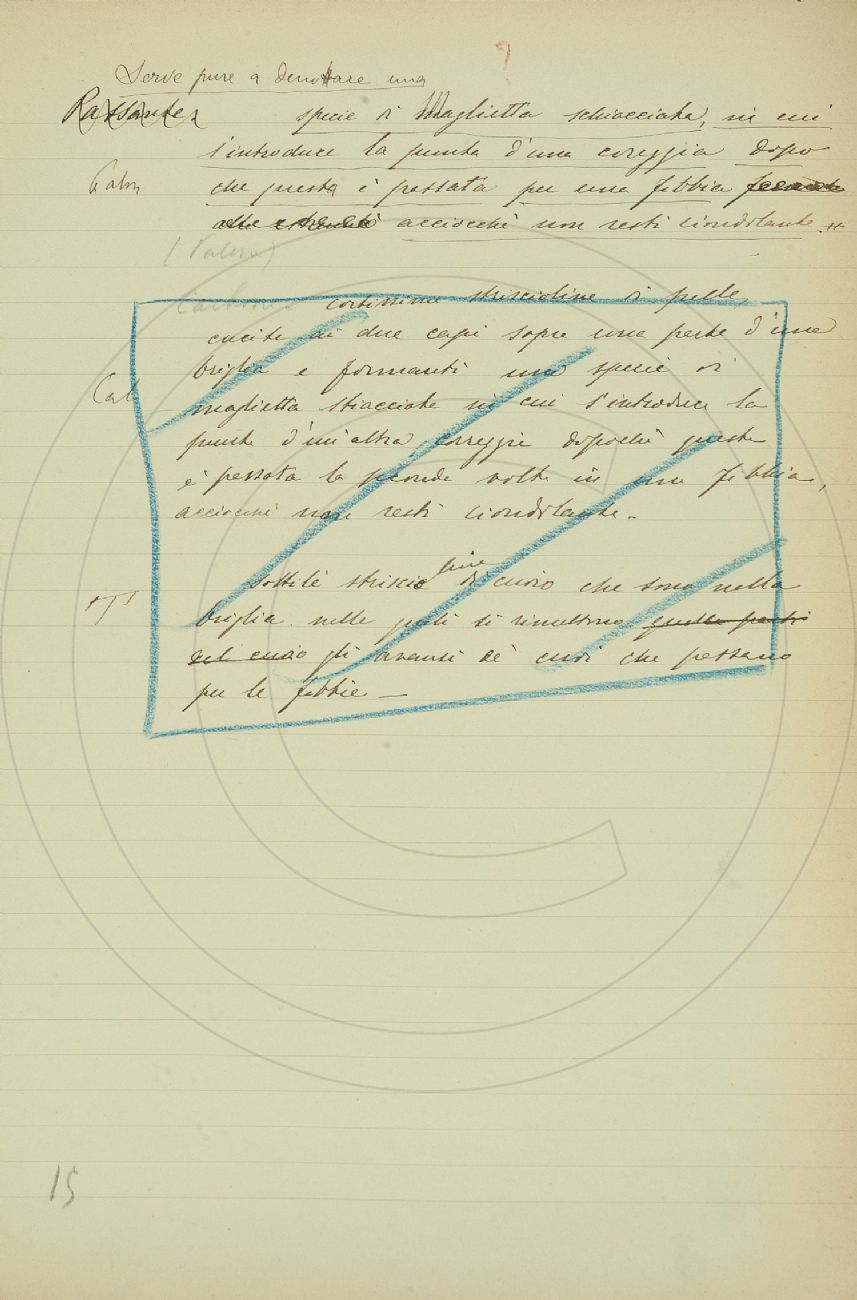 ?
Serve pure a denottare una
Passante specie di Maglietta schiacciata, in cui
s'introduce la punta d'una coreggia dopo
che questa è passata per una fibbia
acciocchè non resti ciondolante.
(Palm)
cortissime striscioline di pelle,
cucite ai due capi sopra una parte d'una
briglia e formanti una specie di
Cal
maglietta stiacciata in cui s'introduce la
punta d'un'altra correggia dopochè questa
è passata la seconda volta in una fibbia,
acciocchè non resti ciondolante.
Sottile striscioline di cuoio che sono nella
briglia nelle quali si rimettono quelle parti
del cuoio gli avanzi de' cuoi che passano
per le fibbie. —
15